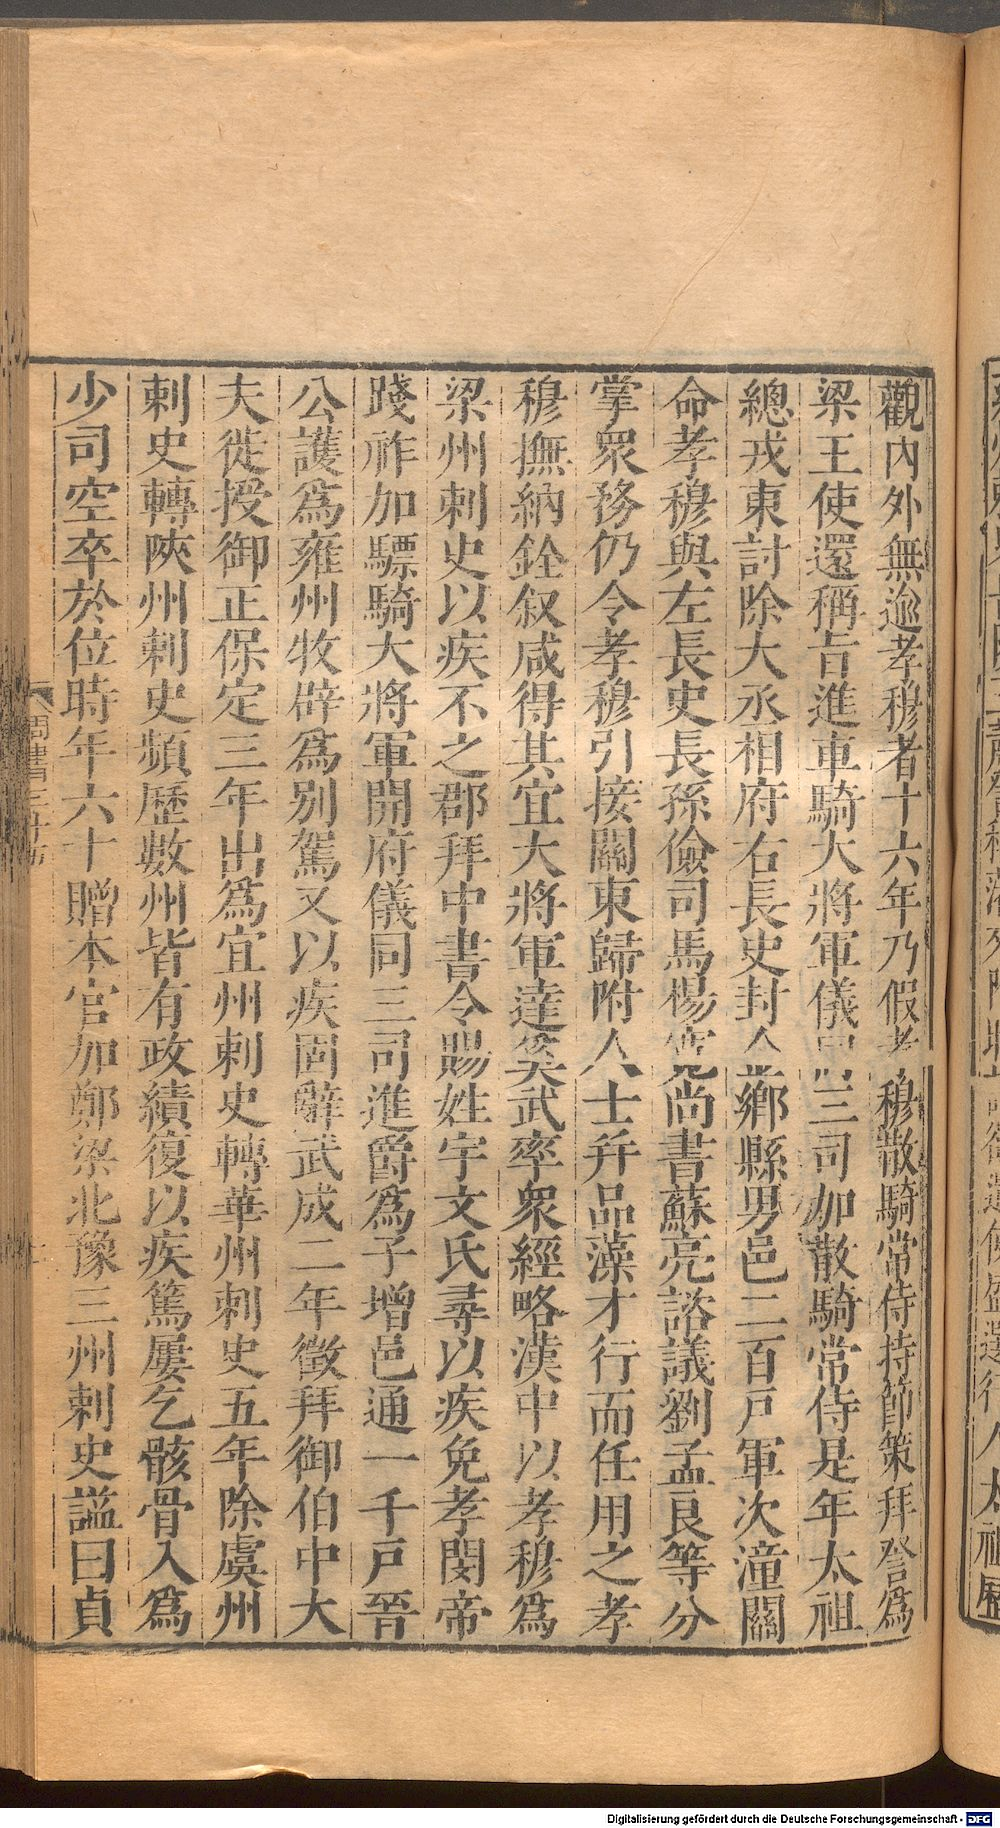 觀內外無逾孝穆者十六年乃假孝穆散騎常侍持節策拜詧爲
梁王使還稱旨進車騎大將軍儀同三司加散騎常侍是年太祖
總戎東討除大丞相府右長史封金鄉縣男邑二百戶軍次潼關
命孝穆與左長史長孫儉司馬楊寬尚書蘇亮諮議劉孟良等分
掌眾務仍令孝穆引接關東歸附人士幷品藻才行而任用之孝
穆撫納銓叙咸得其宜大將軍達奚武率眾經略漢中以孝穆爲
梁州刺史以疾不之郡拜中書令賜姓宇文氏尋以疾免孝閔帝
踐祚加驃騎大將軍開府儀同三司進爵爲子增邑通一千戶晉
公護爲雍州牧辟爲別駕又以疾固辭武成二年徵拜御伯中大
夫徙授御正保定三年出爲宜州刺史轉華州刺史五年除虞州
刺史轉陝州刺史頻歷數州皆有政績復以疾篤屢乞骸骨入爲
少司空卒於位時年六十贈本官加鄭梁北豫三州刺史謚曰貞
周書三十五
Digitalisierung gefördert durch die Deutsche Forschungsgemeinschaft - DFG